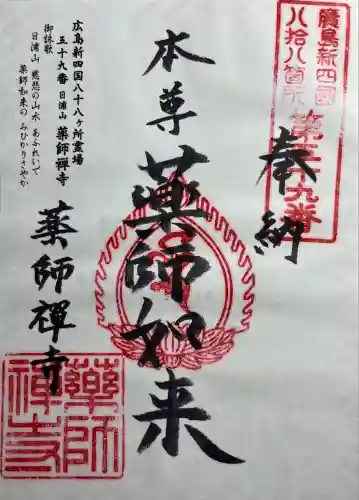 廣島新四国
八拾八箇所
第五十九番
奉納
本尊
薬師如来
広島新四国八十八ヶ所霊場
五十九番 日浦山 薬師禅寺
御詠歌
日浦山 慈悲の山水 あふれいで
薬師如来の みひかりさやか
薬師禪寺
藥師
禅寺